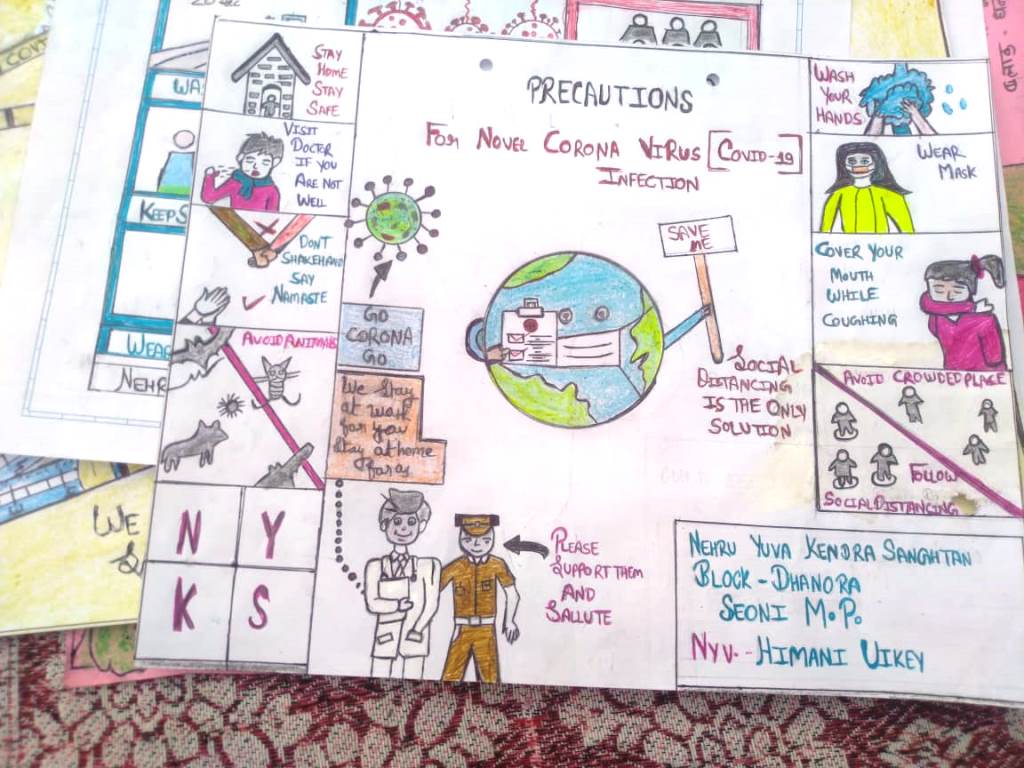 PRECAUTIONS
FOR NOVEL CORONA VIRUS [COVID-19]
INFECTION
STAY
HOME
STAY
SAFE
VISIT
DOCTOR
IF YOU
ARE NOT
WELL
DONT
SHAKEHAND
SAY
NAMASTE
AVOID ANIMALS
N Y
K S
GO
CORONA
GO
We Stay
at work
for you
Stay at home
for us
SAVE
ME
SOCIAL
DISTANCING
IS THE ONLY
SOLUTION
PLEASE
SUPPORT THEM
AND
SALLUTE
WASH
YOUR
HANDS
WEAR
MASK
COVER YOUR
MOUTH
WHILE
COUGHING
AVOID CROWDED PLACE
FOLLOW
SOCIAL DISTANCING
NEHRU YUVA KENDRA SANGHTAN
BLOCK - DHANORA
SEONI M.P.
NYV. - HIMANI UIKEY
WA
KEEP S
WEAR
NEHR
WE